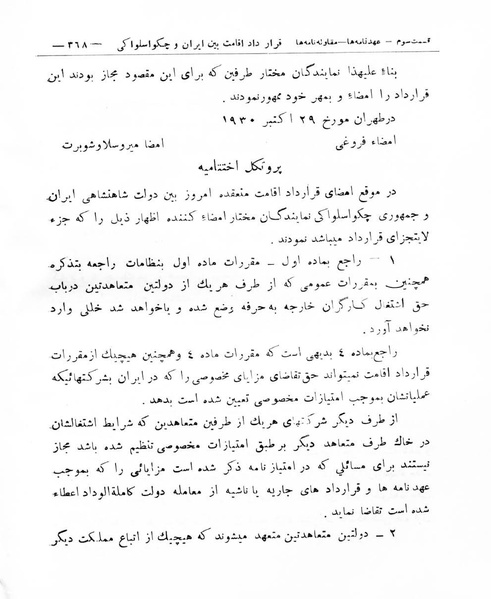 قسمت سوم – عهدنامه‌ها – مقاوله‌نامه‌ها   قرار داد اقامت بین ایران و چکواسلواکی   – ۳۶۸ –
بناءً علیهذا نمایندگان مختار طرفین که برای این مقصود مجاز بودند این
قرارداد را امضاء و بمهر خود ممهورنمودند.
درطهران مورخ ۲۹ اکتبر ۱۹۳۰
امضاء فروغی   امضا میروسلاوشوبرت
پروتکل اختتامیه
در موقع امضای قرارداد اقامت منعقده امروز بین دولت شاهنشاهی ایران
و جمهوری چکواسلواکی نمایندگان مختار امضاء کننده اظهار ذیل را که جزء
لایتجزای قرارداد میباشد نمودند.
۱ – راجع بماده اول – مقررات ماده اول بنظامات راجعه بتذکره
همچنین بمقررات عمومی که از طرف هریك از دولتین متعاهدتین درباب
حق اشتغال کارگران خارجه به‌حرفه وضع شده و یاخواهد شد خللی وارد
نخواهد آورد.
راجع‌بماده ٤ بدیهی است که مقررات ماده ٤ وهمچنین هیچیك ازمقررات
قرارداد اقامت نمیتواند حق‌تقاضای مزایای مخصوصی را که در ایران بشرکتهائیکه
عملیاتشان بموجب امتیازات مخصوصی تعیین شده است بدهد.
از طرف دیگر شرکتهای هریك از طرفین متعاهدین که شرایط اشتغالشان
در خاك طرف متعاهد دیگر برطبق امتیازات مخصوصی تنظیم شده باشد مجاز
نیستند برای مسائلی که در امتیاز نامه ذکر شده است مزایائی را که بموجب
عهدنامه ها و قرارداد های جاریه یاناشیه از معامله دولت کاملةالوداد اعطاء
شده است تقاضا نماید.
۲ – دولتین متعاهدتین متعهد میشوند که هیچیك از اتباع مملکت دیگر